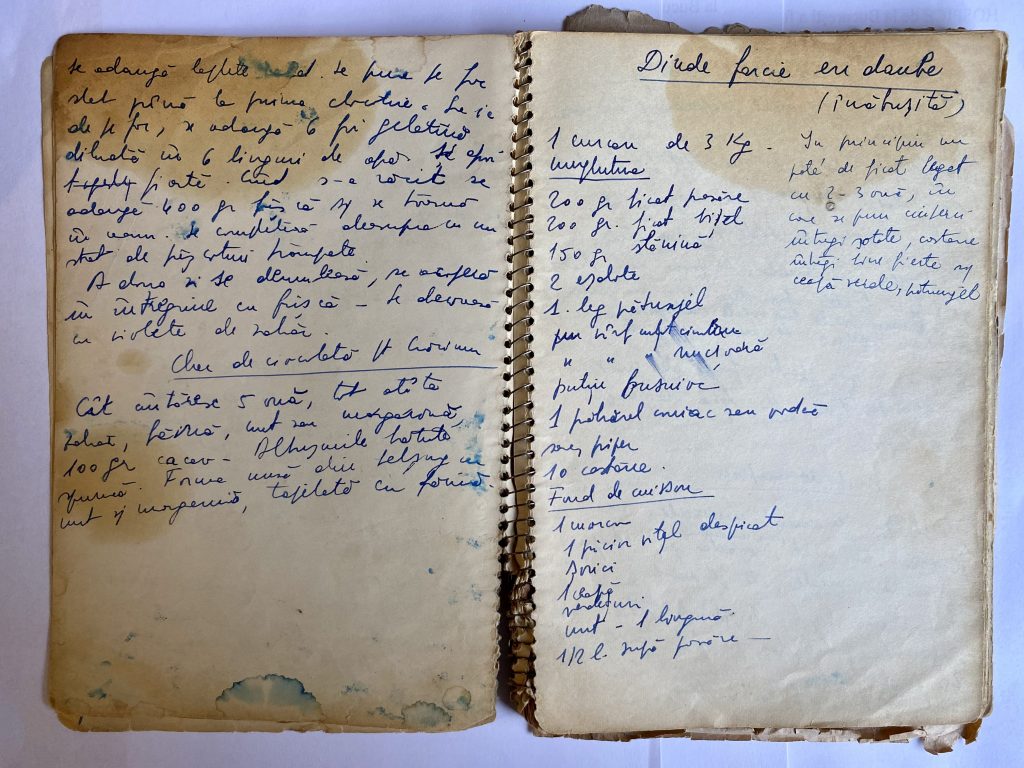 se adaugă laptele cald. Se pune pe foc
stat până la prima clocotire. Se ia
de pe foc, se adaugă 6 foi gelatină
diluată în 6 linguri de apă
fiartă. Când s-a răcit se
adaugă 400 gr frișcă și se toarnă
în
stat de
A doua zi se demulează, se acoperă
în întregime cu frișcă - Se decorează
cu violete de zahăr.
de ciocolată
Cât cântăresc 5 ouă, tot atâta
zahăr, făină, unt sau margarină,
100 gr cacao - Albușurile bătute
spumă. Forma unsă din belșug cu
unt și margarină, tapetată cu făină.
Dinde farcie en daube
(înăbușită)
1 curcan de 3 Kg.
umplutura
200 gr ficat pasăre
200 gr. ficat vițel
150 gr slănină
2 eșalote
1. leg pătrunjel
un vârf cuțit cimbru
" " nucșoară
puțin
1 păhărel coniac sau vodcă
sare, piper
10 castane.
Fond de cuisson
1 morcov
1 picior vițel despicat
șorici
1 ceapă
verdețuri
unt - 1 lingură
1/2 l. supă pasăre -
In principiu un
paté de ficat legat
cu 2-3 ouă, în
care se pun ciuperci
întregi sotate, castane
întregi bine fierte și
ceapă verde, pătrunjel